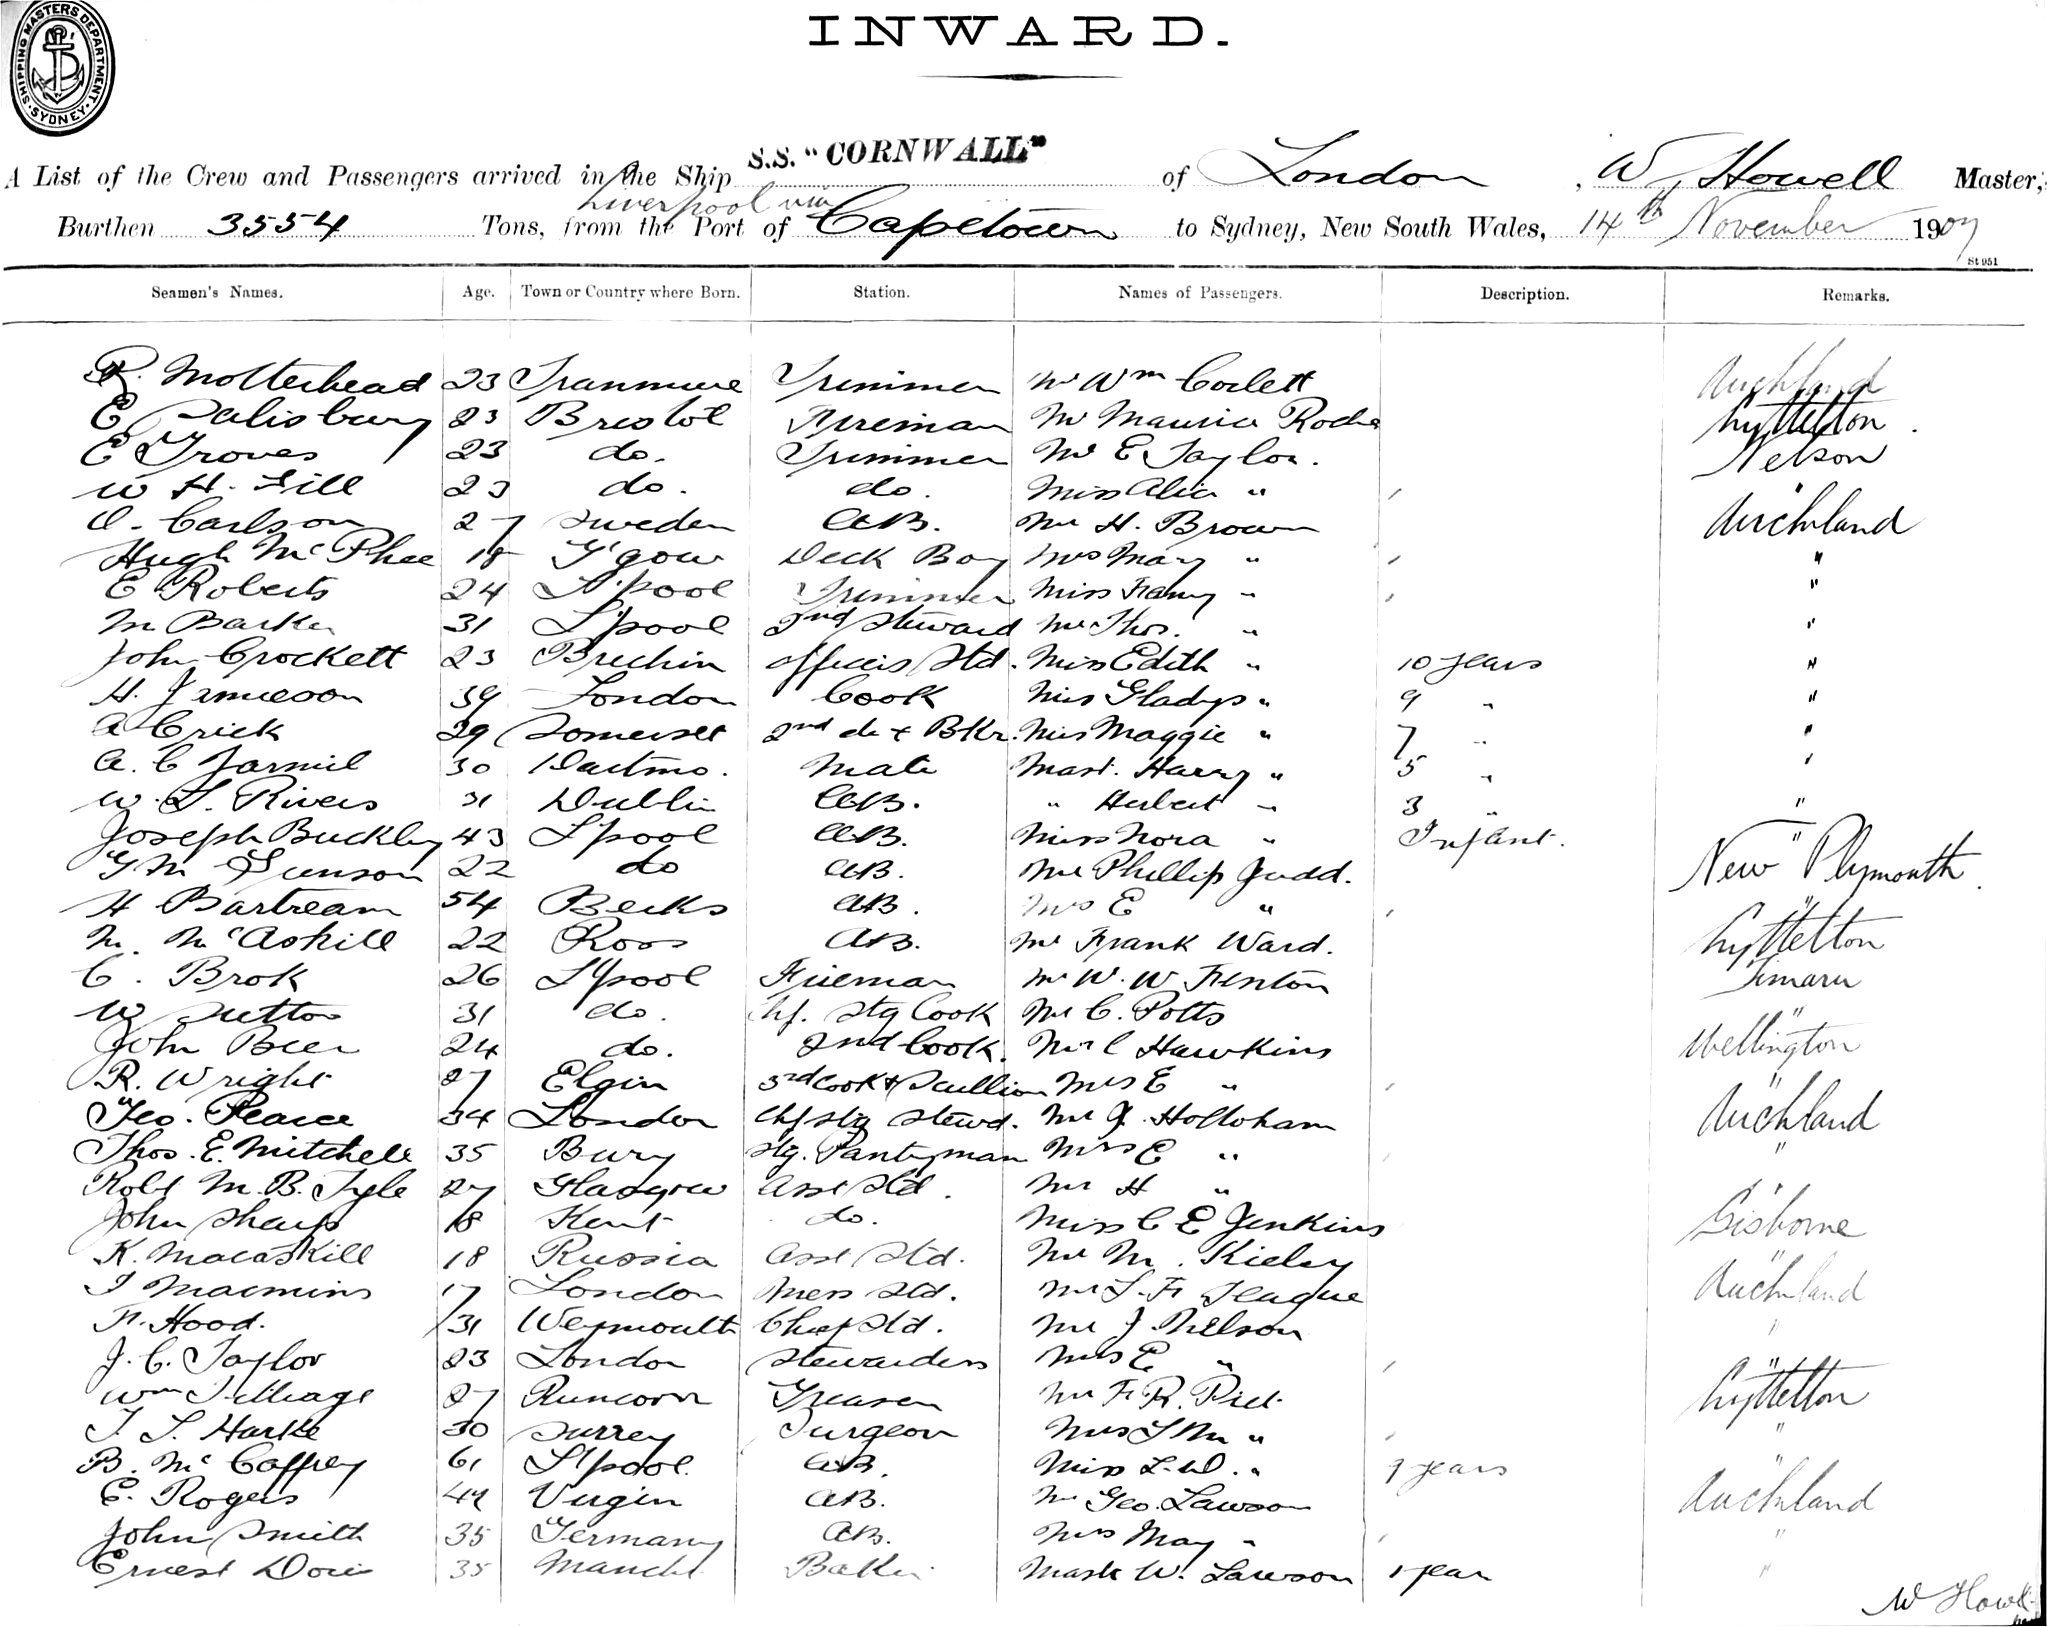 SHIPPING MASTERS DEPARTMENT. SYDNEY
INWARD.
A List of the Crew and Passengers arrived in the Ship S.S. "CORNWALL" of London, W Howell Master,
Liverpool via
Burthen 3554 Tons, from the Port of Capetown to Sydney, New South Wales, 14th November 1907
St 951
Seamen's Names. Age. Town or Country where Born. Station. Names of Passengers. Description. Remarks.
R. Motterhead 23 Tranmere Trimmer Mr Wm Corlett Auckland
E Salisbury 23 Bristol Fireman Mr Maurice Roche Lyttelton
E Groves 23 do. Trimmer Mr E Taylor. Nelson
W H. Gill 23 do. do. Miss Alice " "
O. Carlson 27 Sweden A.B. Mr H. Brown Auckland
Hugh McPhee 18 G'gow Deck Boy Mrs Mary " "
E Roberts 24 L'pool Trimmer Miss Fanny " "
M Barker 31 L'pool 2nd Steward Mr Thos. " "
John Crockett 23 Brechin Officers Std. Miss Edith " 10 years "
H. Jamieson 39 London Cook Miss Gladys " 9 " "
A Crick 29 Somerset 2nd do + Bkr. Miss Maggie " 7 " "
A. C Jarmil 30 Dartmo. Mate Mast. Harry " 5 " "
W. S. Rivers 31 Dublin A.B. " Herbert " 3 " "
Joseph Buckley 43 L'pool A.B. Miss Nora " Infant. "
G M Gunson 22 do A.B. Mr Phillip Judd. New Plymouth
H Bartream 54 Berks A.B. Mrs E " "
M. McAskill 22 Ross A.B. Mr Frank Ward. Lyttelton
C. Brok 26 L'pool Fireman Mr W. W Fenton Timaru
W Sutton 31 do. Chf. Stg Cook Mr C. Potts "
John Beer 24 do. 2nd Cook. Mr C Hawkins Wellington
R. Wright 27 Elgin 3rd Cook & Scullion Mrs E " "
Geo. Pearce 34 London Chf Stg Stewd. Mr J. Holloham Auckland
Thos. E. Mitchell 35 Bury Stg. Pantryman Mrs E " "
Robt M. B. Lyle 27 Glasgow Asst Std. Mr H " "
John Sharp 18 Kent do. Miss C E Jenkins Gisborne
K. Macaskill 18 Russia Asst Std. Mr M. Kieley "
I Macmins 17 London Mess Std. Mr L. F. Teague Auckland
F. Hood. 31 Weymouth Chief Std. Mr J. Nelson "
J. C. Taylor 23 London Stewardess Mrs E " "
Wm 27 Runcorn Greaser Mr F. R. Lyttelton
T. S. Harke 30 Surrey Surgeon Mrs L M " "
B. McCaffrey 61 L'pool. A.B. Miss L. W. " 9 years "
E. Rogers 49 Virgin A.B. Mr Geo. Lawson Auckland
John Smith 35 Germany A.B. Mrs May " "
Ernest 35 Mancht Baker Mastr W. Lawson 1 year "
W Howell